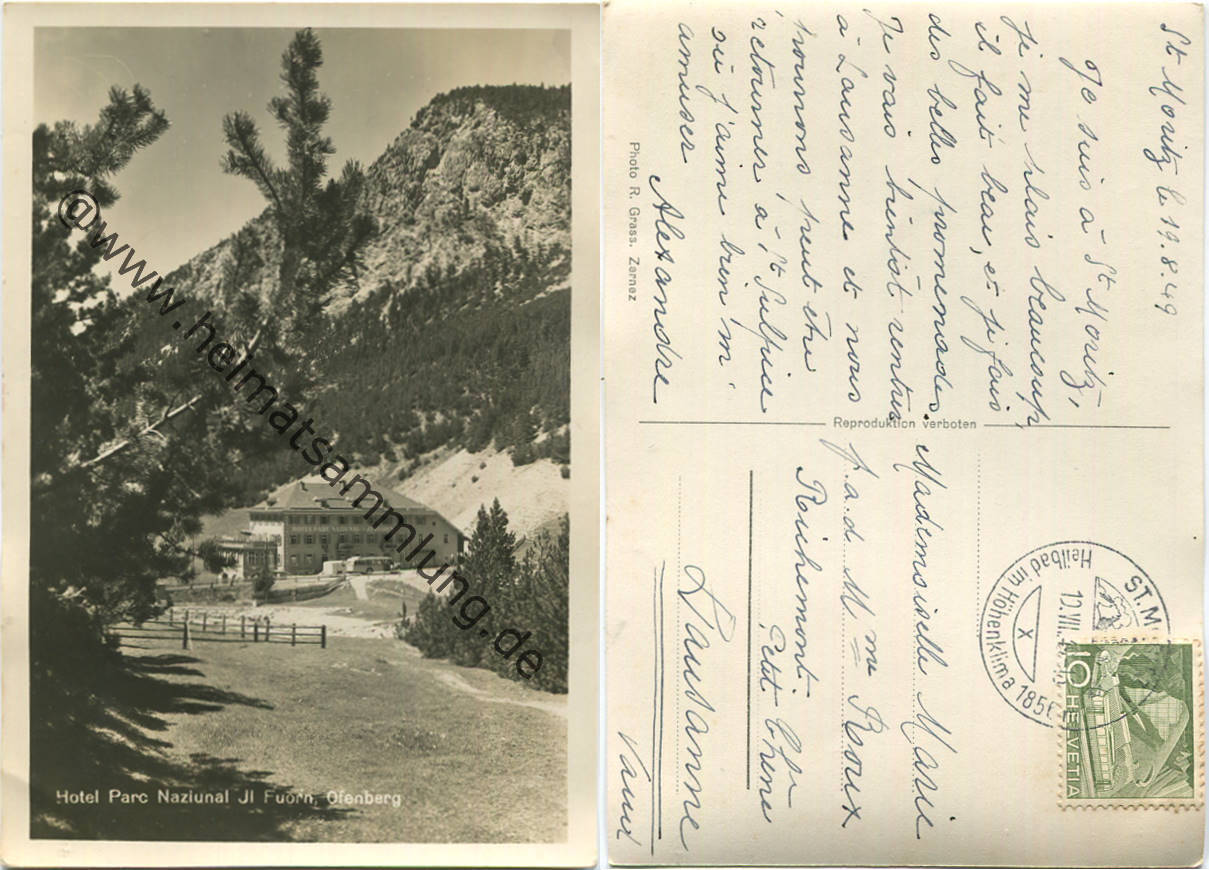 Hotel Parc Naziunal Jl Fuorn, Ofenberg
@www.heimatsammlung.de
HOTEL PARC NAZIUNAL
St Moritz le 19.8.49
Je suis à St Moritz,
je me plais beaucoup,
il fait beau, et je fais
des belles promenades.
Je vais bientôt rentrer
à Lausanne et nous
pourrons peut être
retourner à St Sulpice
où j'aime bien m'
amuser
Alexandre
Photo R. Grass. Zernez
Reproduktion verboten
Mademoiselle Marie
p.a.d Mme Roux
Petit Chêne
Lausanne
Vaud
ST.M
Heilbad im Hohenklima 1856
X
10
HELVETIA